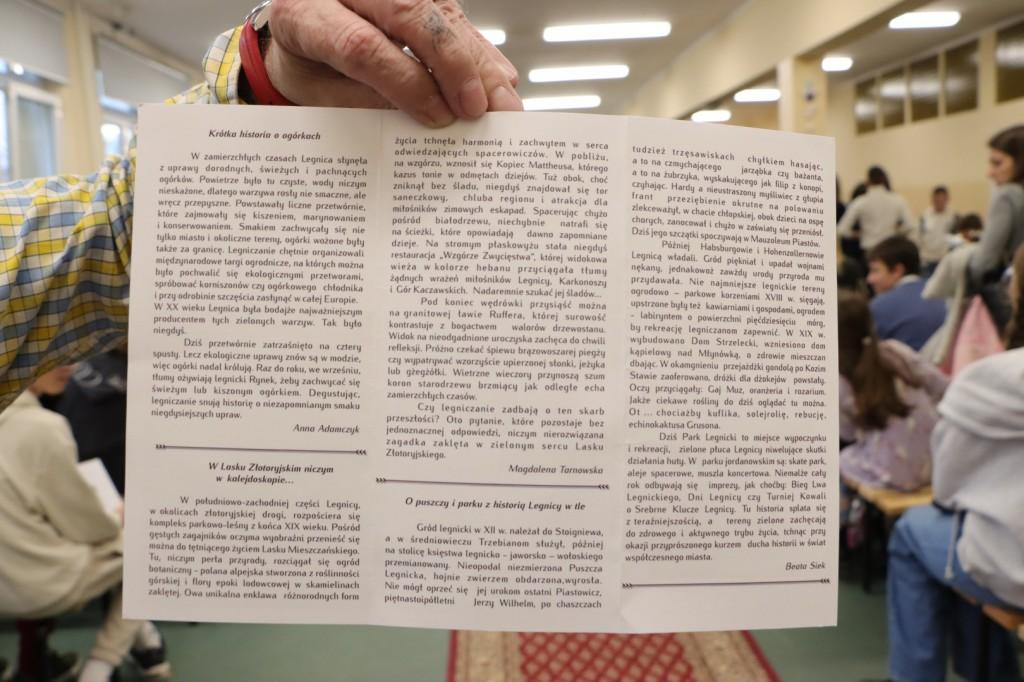 Krótka historia o ogórkach
W zamierzchłych czasach Legnica słynęła
z uprawy dorodnych, świeżych i pachnących
ogórków. Powietrze było tu czyste, wody niczym
nieskażone, dlatego warzywa rosły nie smaczne, ale
wręcz przepyszne. Powstawały liczne przetwórnie,
które zajmowały się kiszeniem, marynowaniem
i konserwowaniem. Smakiem zachwycały się nie
tylko miasto i okoliczne tereny, ogórki wożone były
także za granicę. Legniczanie chętnie organizowali
międzynarodowe targi ogrodnicze, na których można
było pochwalić się ekologicznymi przetworami,
spróbować korniszonów czy ogórkowego chłodnika
i przy odrobinie szczęścia zasłynąć w całej Europie.
W XX wieku Legnica była bodajże najważniejszym
producentem tych zielonych warzyw. Tak było
niegdyś.
Dziś przetwórnie zatrzaśnięto na cztery
spusty. Lecz ekologiczne uprawy znów są w modzie,
więc ogórki nadal królują. Raz do roku, we wrześniu,
tłumy ożywiają legnicki Rynek, żeby zachwycać się
świeżym lub kiszonym ogórkiem. Degustując,
legniczanie snują historię o niezapomnianym smaku
niegdysiejszych upraw.
Anna Adamczyk
W Lasku Złotoryjskim niczym
w kalejdoskopie...
W południowo-zachodniej części Legnicy,
w okolicach złotoryjskiej drogi, rozpościera się
kompleks parkowo-leśny z końca XIX wieku. Pośród
gęstych zagajników oczyma wyobraźni przenieść się
można do tętniącego życiem Lasku Mieszczańskiego.
Tu, niczym perła przyrody, rozciągał się ogród
botaniczny - polana alpejska stworzona z roślinności
górskiej i flory epoki lodowcowej w skamielinach
zaklętej. Owa unikalna enklawa różnorodnych form
życia tchnęła harmonią i zachwytem w serca
odwiedzających spacerowiczów. W pobliżu,
na wzgórzu, wznosił się Kopiec Mattheusa, którego
kazus tonie w odmętach dziejów. Tuż obok, choć
zniknął bez śladu, niegdyś znajdował się tor
saneczkowy, chluba regionu i atrakcja dla
miłośników zimowych eskapad. Spacerując chyżo
pośród białodrzewu, niechybnie natrafi się
na ścieżki, które opowiadają dawno zapomniane
dzieje. Na stromym płaskowyżu stała niegdyś
restauracja „Wzgórze Zwycięstwa”, której widokowa
wieża w kolorze hebanu przyciągała tłumy
żądnych wrażeń miłośników Legnicy, Karkonoszy
i Gór Kaczawskich. Nadaremnie szukać jej śladów...
Pod koniec wędrówki przysiąść można
na granitowej ławie Ruffera, której surowość
kontrastuje z bogactwem walorów drzewostanu.
Widok na nieodgadnione uroczyska zachęca do chwili
refleksji. Próżno czekać śpiewu brązowoszarej piegży
czy wypatrywać wzorzyście upierzonej słonki, jeżyka
lub gżegżółki. Wietrzne wieczory przynoszą szum
koron starodrzewu brzmiący jak odległe echa
zamierzchłych czasów.
Czy legniczanie zadbają o ten skarb
przeszłości? Oto pytanie, które pozostaje bez
jednoznacznej odpowiedzi, niczym nierozwiązana
zagadka zaklęta w zielonym sercu Lasku
Złotoryjskiego.
Magdalena Tarnowska
O puszczy i parku z historią Legnicy w tle
Gród legnicki w XII w. należał do Stoigniewa,
a w średniowieczu Trzebianom służył, później
na stolicę księstwa legnicko - jaworsko - wołoskiego
przemianowany. Nieopodal niezmierzona Puszcza
Legnicka, hojnie zwierzem obdarzona,wyrosła.
Nie mógł oprzeć się jej urokom ostatni Piastowicz,
piętnastoipółletni Jerzy Wilhelm, po chaszczach
tudzież trzęsawiskach chyłkiem hasając,
a to na czmychającego jarząbka czy bażanta,
a to na żubrzyka, wyskakującego jak filip z konopi,
czyhając. Hardy a nieustraszony myśliwiec z głupia
frant przeziębienie okrutne na polowaniu
zlekceważył, w chacie chłopskiej, obok dzieci na ospę
chorych, zanocował i chyżo w zaświaty się przeniósł.
Dziś jego szczątki spoczywają w Mauzoleum Piastów.
Później Habsburgowie i Hohenzollernowie
Legnicą władali. Gród piękniał i upadał wojnami
nękany, jednakowoż zawżdy urody przyroda mu
przydawała. Nie najmniejsze legnickie tereny
ogrodowo - parkowe korzeniami XVIII w. sięgają,
upstrzone były też kawiarniami i gospodami, ogrodem
- labiryntem o powierzchni pięćdziesięciu mórg,
by rekreację legniczanom zapewnić. W XIX w.
wybudowano Dom Strzelecki, wzniesiono dom
kąpielowy nad Młynówką, o zdrowie mieszczan
dbając. W okamgnieniu przejażdżki gondolą po Kozim
Stawie zaoferowano, dróżki dla dżokejów powstały.
Oczy przyciągały: Gaj Muz, oranżeria i rozarium.
Jakże ciekawe rośliny do dziś oglądać tu można.
Ot ... chociażby kuflika, solejrolię, rebucję,
echinokaktusa Grusona.
Dziś Park Legnicki to miejsce wypoczynku
i rekreacji, zielone płuca Legnicy niwelujące skutki
działania huty. W parku jordanowskim są: skate park,
aleje spacerowe, muszla koncertowa. Niemalże cały
rok odbywają się imprezy, jak choćby: Bieg Lwa
Legnickiego, Dni Legnicy czy Turniej Kowali
o Srebrne Klucze Legnicy. Tu historia splata się
z teraźniejszością, a tereny zielone zachęcają
do zdrowego i aktywnego trybu życia, tchnąc przy
okazji przyprószonego kurzem ducha historii w świat
współczesnego miasta.
Beata Siek